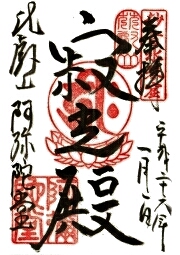 奉拝
平成二十六年
一月一日
寂光殿
比叡山 阿弥陀堂